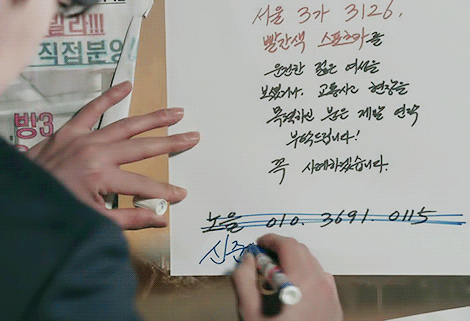 빌라!!!
직접분양
방3
서울 3가 3126.
빨간색 스포츠카를
운전한 젊은 여성을
보셨거나, 교통사고 현장을
목격하신 분은 제발 연락
부탁드립니다!
꼭 사례하겠습니다.
노을 010. 3691. 0115
신주